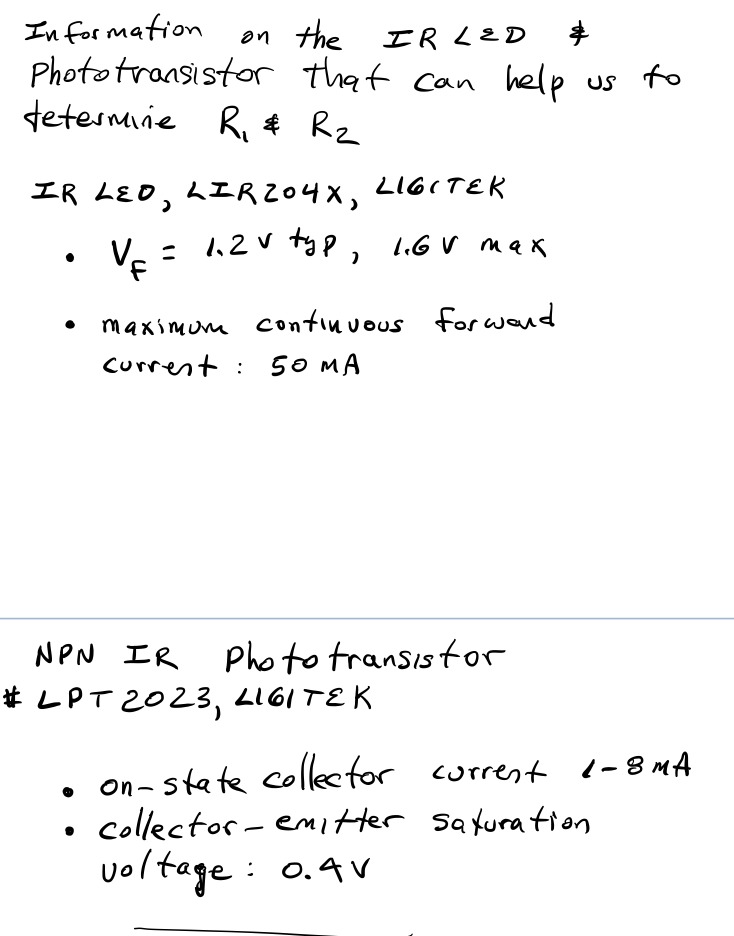 Information on the IR LED &
Phototransistor that can help us to
determine R1 & R2
IR LED, LIR204X, LIGITEK
• VF = 1.2V typ, 1.6V max
• maximum continuous forward
current: 50 mA
NPN IR Phototransistor
# LPT2023, LIGITEK
• on-state collector current 1-8mA
• collector-emitter saturation
voltage: 0.4V